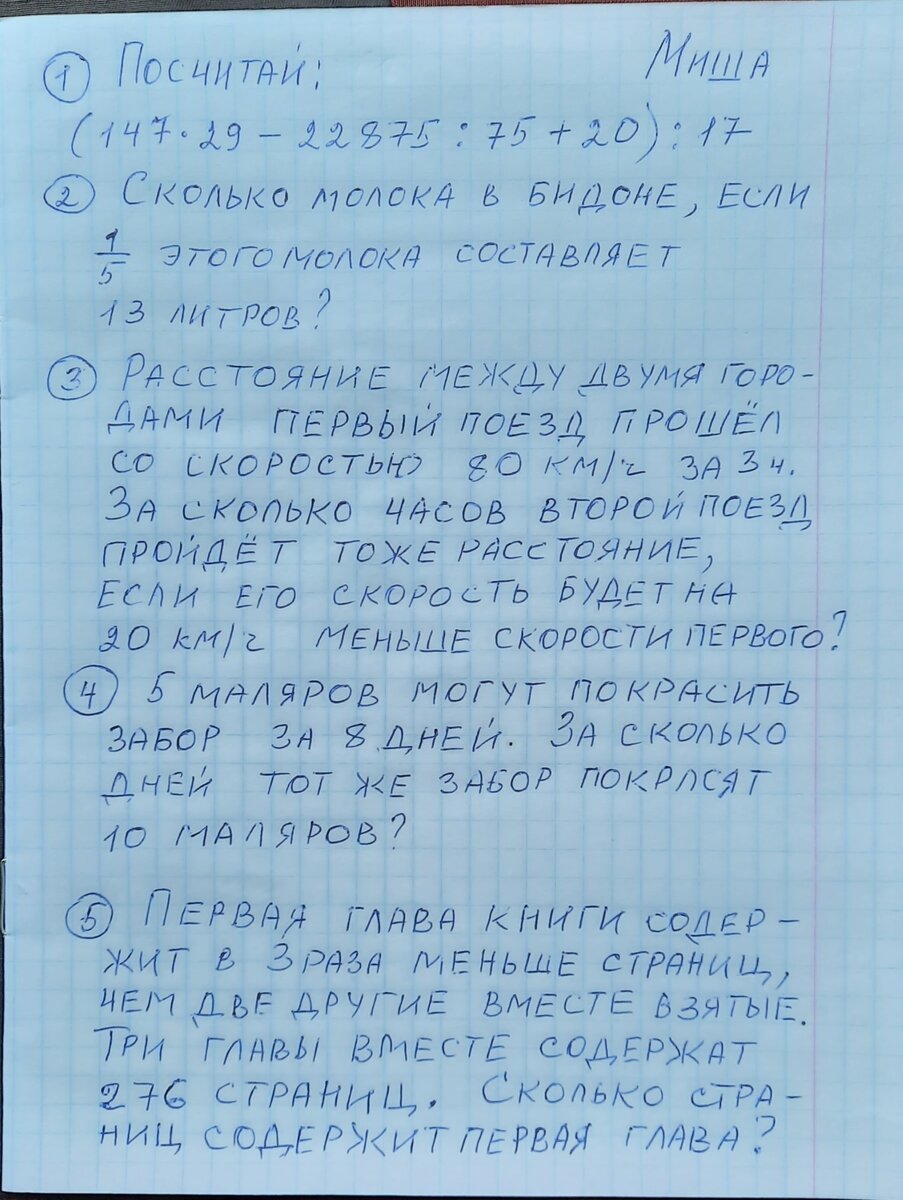 ① Посчитай: Миша
(147·29 – 22875 : 75 + 20) : 17
② Сколько молока в бидоне, если
1/5 этого молока составляет
13 литров?
③ Расстояние между двумя горо-
дами первый поезд прошёл
со скоростью 80 км/ч за 3 ч.
За сколько часов второй поезд
пройдёт тоже расстояние,
если его скорость будет на
20 км/ч меньше скорости первого?
④ 5 маляров могут покрасить
забор за 8 дней. За сколько
дней тот же забор покрасят
10 маляров?
⑤ Первая глава книги содер-
жит в 3 раза меньше страниц,
чем две другие вместе взятые.
Три главы вместе содержат
276 страниц. Сколько стра-
ниц содержит первая глава?